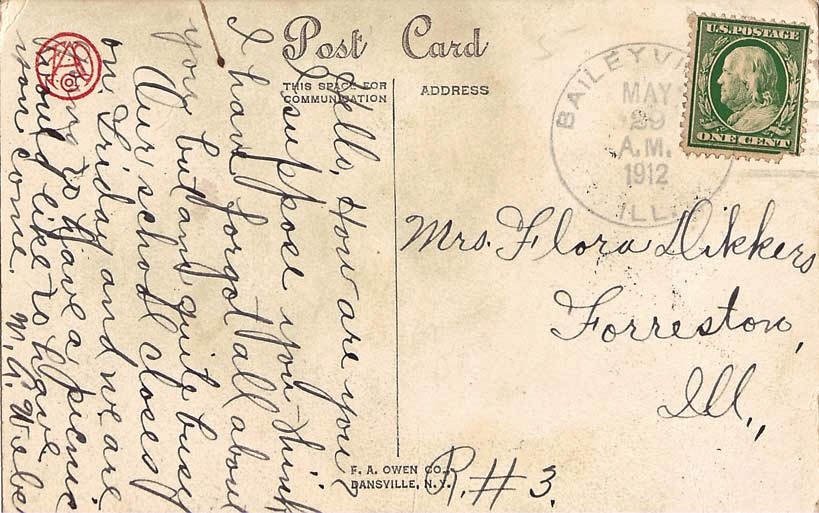 Post Card
THIS SPACE FOR
COMMUNICATION
ADDRESS
U.S. POSTAGE
ONE CENT
BAILEYVI
MAY
29
A.M.
1912
ILL.
Hello, How are you?
I suppose you think
I have forgot all about
you but am quite busy
Our school closes
on Friday and we are
going to have a picnic
would like to have
you come. M. A. Webe
Mrs. Flora Dikkers
Forreston,
Ill.,
R. #3.
F. A. OWEN CO.,
DANSVILLE, N.Y.